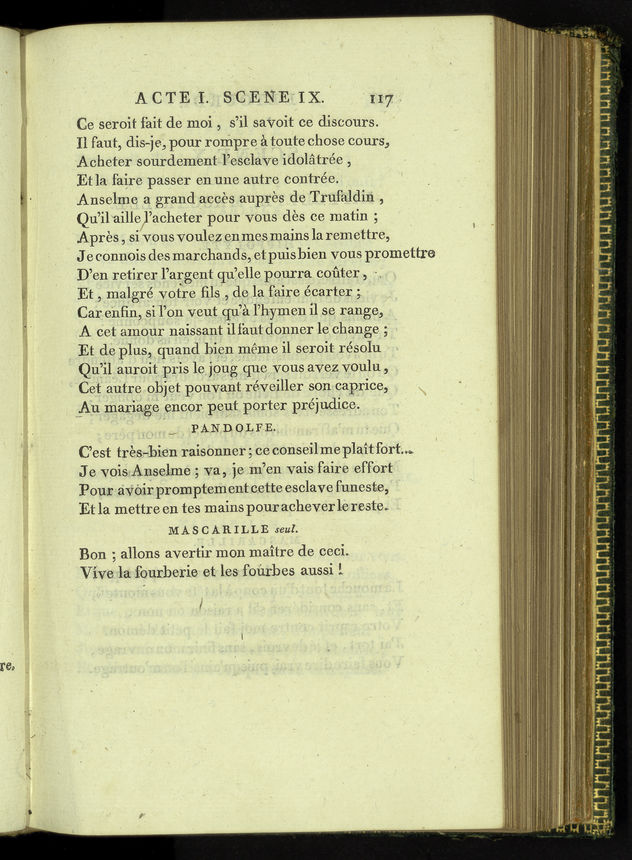 ACTE I. SCENE IX. 117
Ce seroit fait de moi, s'il savoit ce discours.
Il faut, dis-je, pour rompre à toute chose cours,
Acheter sourdement l'esclave idolâtrée,
Et la faire passer en une autre contrée.
Anselme a grand accès auprès de Trufaldin,
Qu'il aille l'acheter pour vous dès ce matin ;
Après, si vous voulez en mes mains la remettre,
Je connois des marchands, et puis bien vous promettre
D'en retirer l'argent qu'elle pourra coûter,
Et, malgré votre fils, de la faire écarter ;
Car enfin, si l'on veut qu'à l'hymen il se range,
A cet amour naissant il faut donner le change ;
Et de plus, quand bien même il seroit résolu
Qu'il auroit pris le joug que vous avez voulu,
Cet autre objet pouvant réveiller son caprice,
Au mariage encor peut porter préjudice.
PANDOLFE.
C'est très-bien raisonner ; ce conseil me plaît fort...
Je vois Anselme ; va, je m'en vais faire effort
Pour avoir promptement cette esclave funeste,
Et la mettre en tes mains pour achever le reste.
MASCARILLE seul.
Bon ; allons avertir mon maître de ceci.
Vive la fourberie et les fourbes aussi !
re,